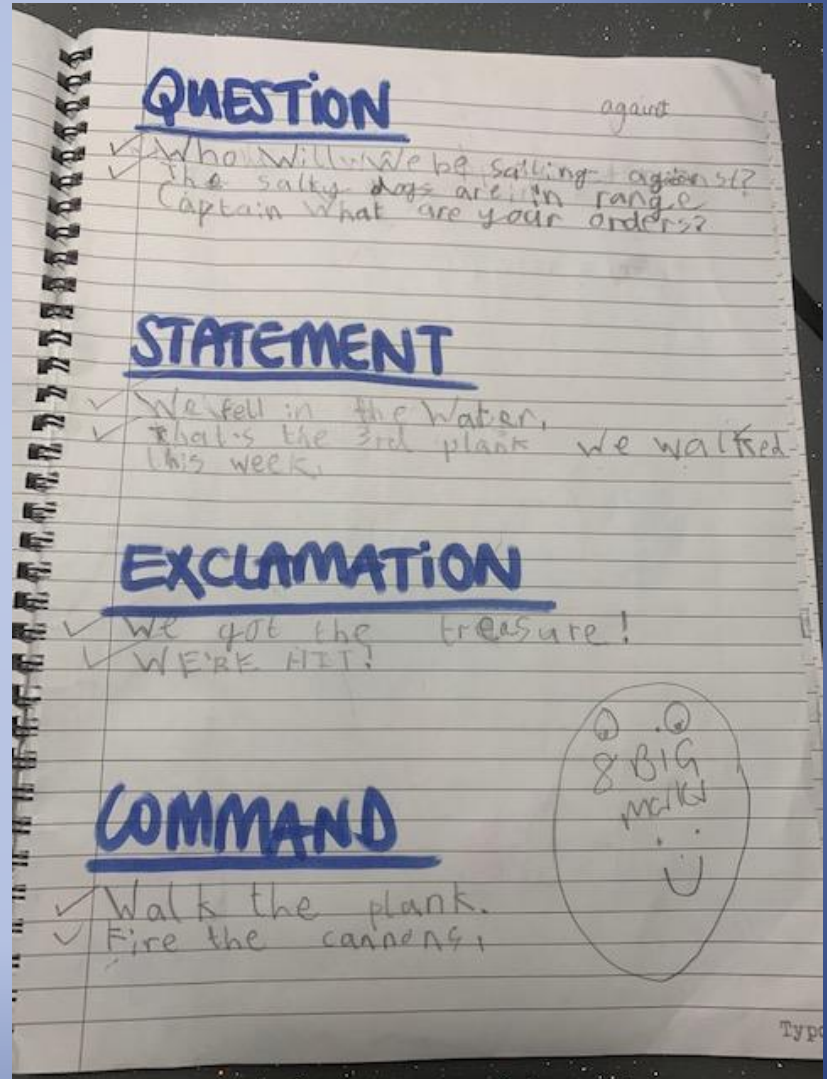 QUESTION
against
Who Will We be sailing against?
The salty dogs are in range
Captain What are your orders?
STATEMENT
We fell in the Water.
That's the 3rd plank we walked
this week.
EXCLAMATION
We got the treasure!
WE'RE HIT!
8 BIG
marks
COMMAND
Walk the plank.
Fire the cannons.
Typo